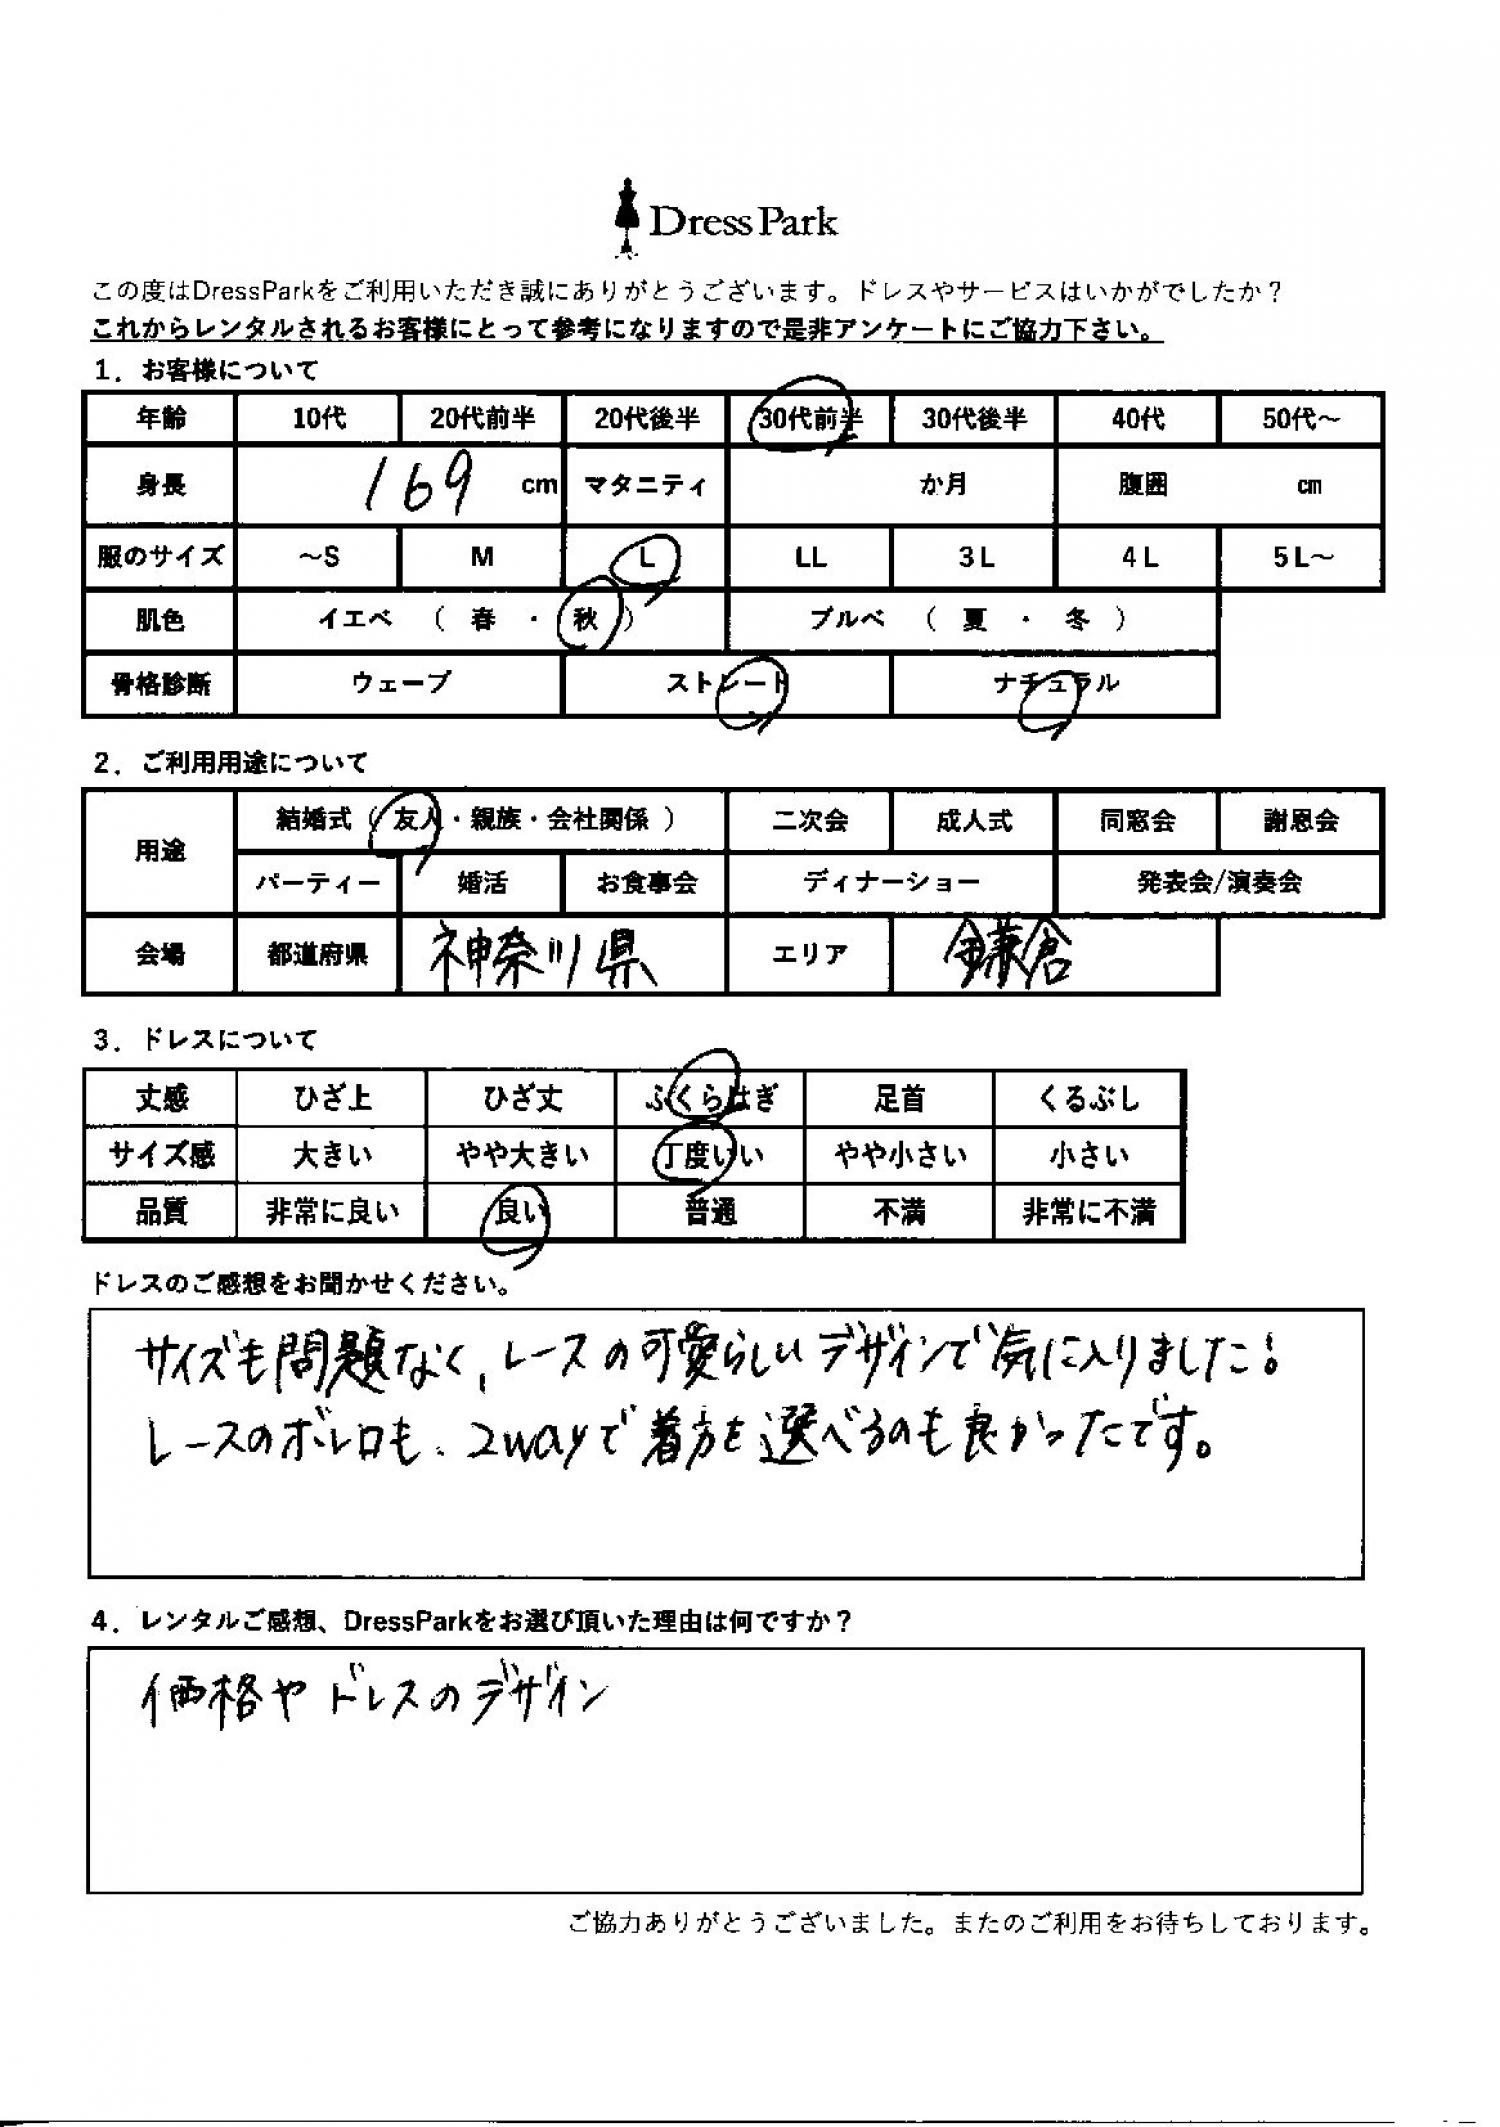 Dress Park
この度はDressParkをご利用いただき誠にありがとうございます。ドレスやサービスはいかがでしたか？
これからレンタルされるお客様にとって参考になりますので是非アンケートにご協力下さい。
1．お客様について
年齢 10代 20代前半 20代後半 30代前半 30代後半 40代 50代～
身長 169 cm マタニティ か月 腹囲 cm
服のサイズ ～S M L LL 3L 4L 5L～
肌色 イエベ （ 春 ・ 秋 ） ブルベ （ 夏 ・ 冬 ）
骨格診断 ウェーブ ストレート ナチュラル
2．ご利用用途について
用途 結婚式（ 友人・親族・会社関係 ） 二次会 成人式 同窓会 謝恩会
パーティー 婚活 お食事会 ディナーショー 発表会/演奏会
会場 都道府県 神奈川県 エリア 鎌倉
3．ドレスについて
丈感 ひざ上 ひざ丈 ふくらはぎ 足首 くるぶし
サイズ感 大きい やや大きい 丁度いい やや小さい 小さい
品質 非常に良い 良い 普通 不満 非常に不満
ドレスのご感想をお聞かせください。
サイズも問題なく、レースの可愛らしいデザインで気に入りました！
レースのボレロも、2wayで着方を選べるのも良かったです。
4．レンタルご感想、DressParkをお選び頂いた理由は何ですか？
価格やドレスのデザイン
ご協力ありがとうございました。またのご利用をお待ちしております。